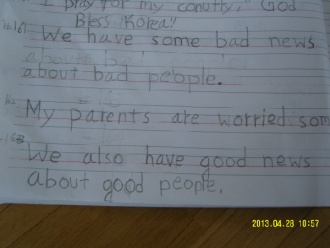 I pray for my conutly." God
Bless Korea!!
We have some bad news
about bad people.
My parents are worried som
We also have good news
about good people.
2013.04.28 10:57